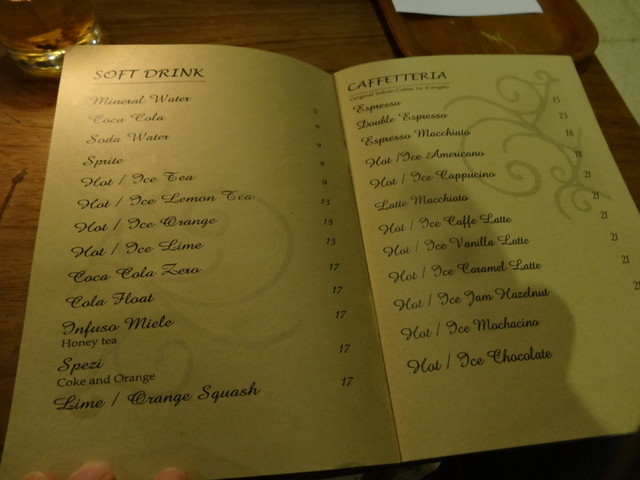 SOFT DRINK
Mineral Water
Coca Cola 5
Soda Water 9
Sprite 9
Hot / Ice Tea 9
Hot / Ice Lemon Tea 9
Hot / Ice Orange 13
Hot / Ice Lime 13
Coca Cola Zero 13
Cola Float 17
Infuso Miele 17
Honey tea 17
Spezi
Coke and Orange 17
Lime / Orange Squash 17
CAFFETTERIA
Original Italian Coffee by
Espresso
Double Espresso 15
Espresso Macchiato 23
Hot /Ice Americano 18
Hot / Ice Cappucino 18
Latte Macchiato 21
Hot / Ice Caffe Latte 21
Hot / Ice Vanilla Latte 21
Hot / Ice Caramel Latte 21
Hot / Ice Jam Hazelnut
Hot / Ice Mochacino
Hot / Ice Chocolate